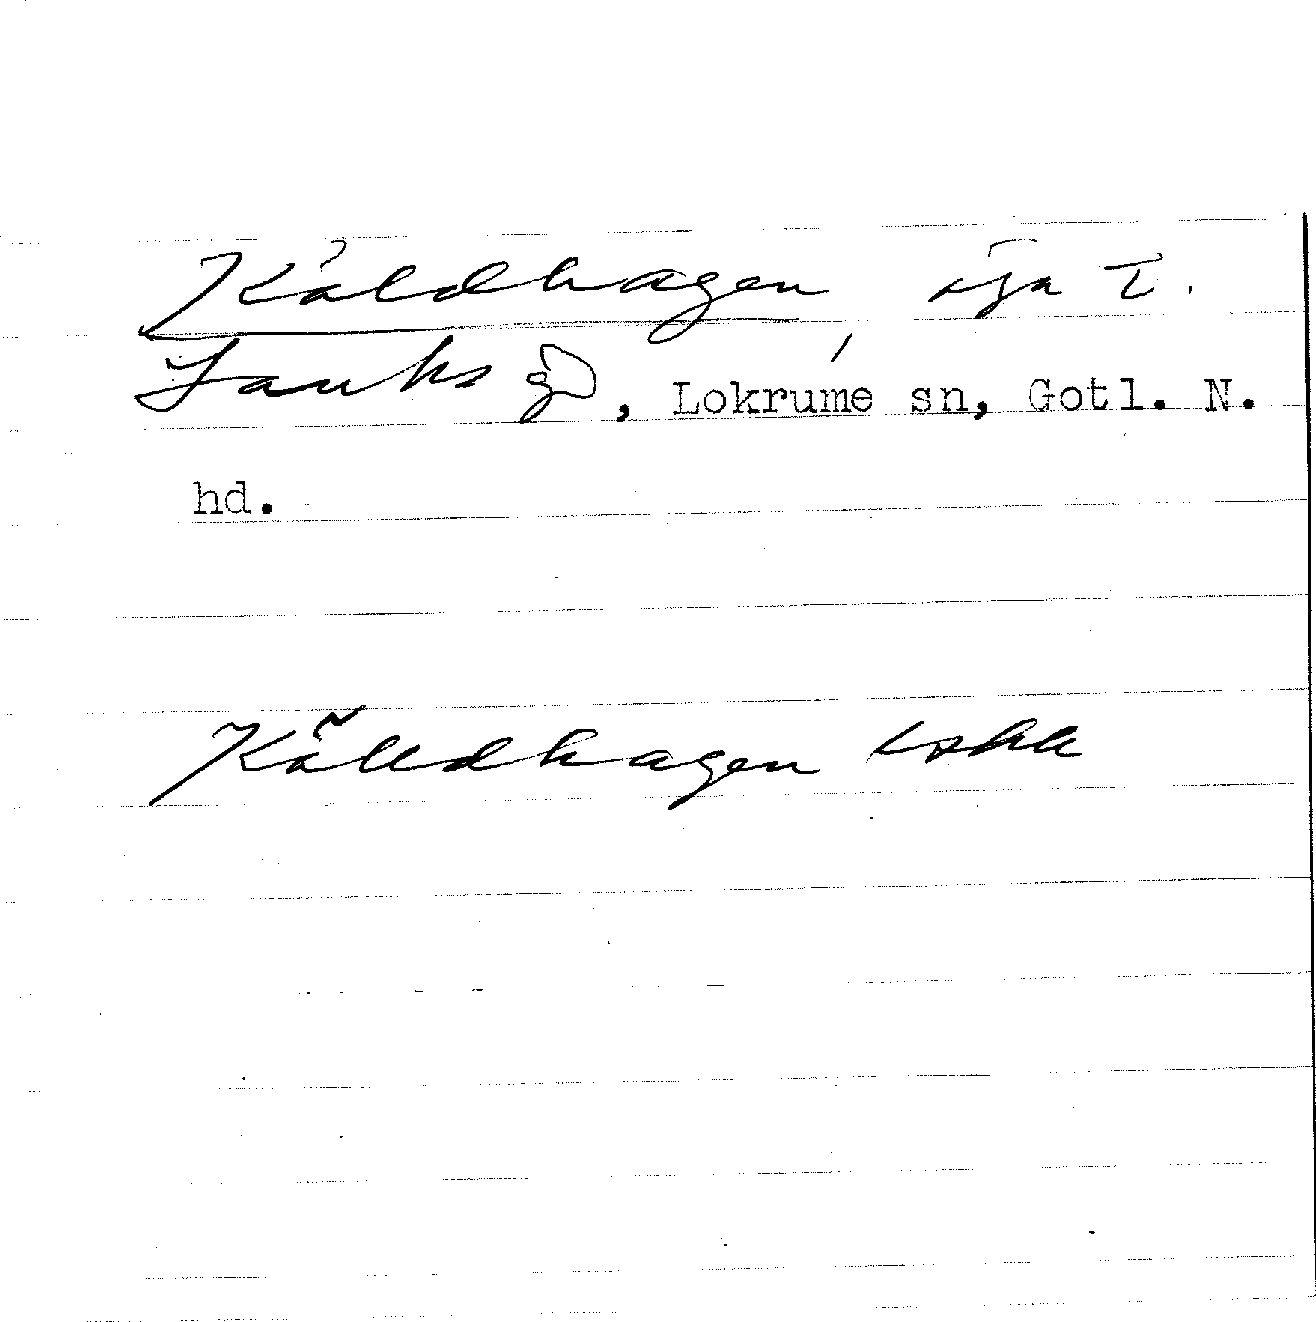 Käldhagen äga t.
Lauks gd, Lokrume sn, Gotl. N.
hd.
Källdhagen